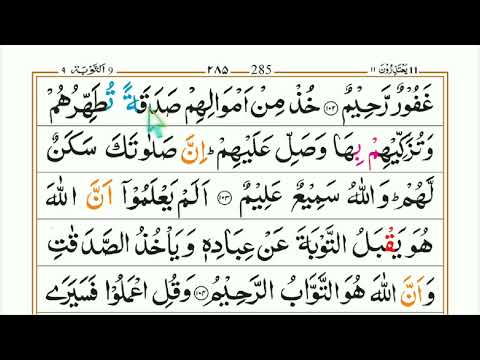 ۹ اَلتَّوْبَة 9 ۲۸۵ 285 ۱۱ يَعْتَذِرُوْنَ 11
غَفُوْرٌ رَّحِيْمٌ ﴿۱۰۲﴾ خُذْ مِنْ اَمْوَالِهِمْ صَدَقَةً تُطَهِّرُهُمْ
وَتُزَكِّيْهِمْ بِهَا وَصَلِّ عَلَيْهِمْ ؕ اِنَّ صَلٰوتَكَ سَكَنٌ
لَّهُمْ ؕ وَاللّٰهُ سَمِيْعٌ عَلِيْمٌ ﴿۱۰۳﴾ اَلَمْ يَعْلَمُوْۤا اَنَّ اللّٰهَ
هُوَ يَقْبَلُ التَّوْبَةَ عَنْ عِبَادِهٖ وَيَاْخُذُ الصَّدَقٰتِ
وَاَنَّ اللّٰهَ هُوَ التَّوَّابُ الرَّحِيْمُ ﴿۱۰۴﴾ وَقُلِ اعْمَلُوْا فَسَيَرَى